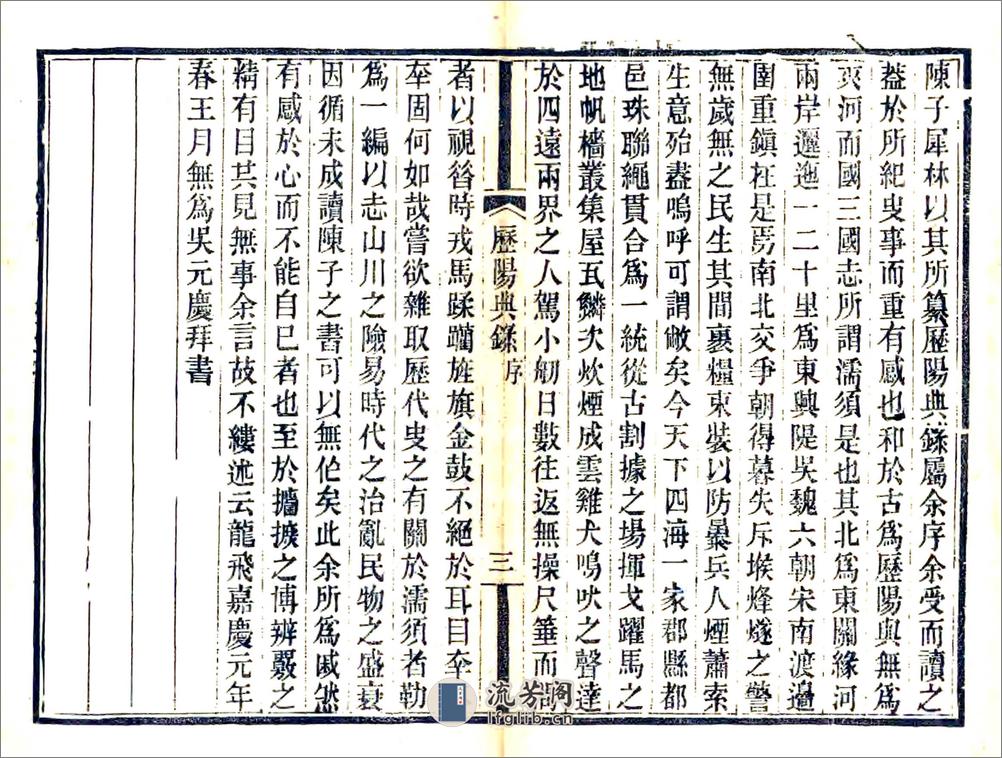 陳子犀林以其所纂歷陽典錄屬余序余受而讀之
葢於所紀叓事而重有感也和於古爲歷陽與無爲
夾河而國三國志所謂濡須是也其北爲東關緣河
兩岸邐迤一二十里爲東興隄吳魏六朝宋南渡邊
圉重鎭在是焉南北交爭朝得暮失斥堠烽燧之警
無歲無之民生其間裹糧束裝以防暴兵人煙蕭索
生意殆盡嗚呼可謂敝矣今天下四海一家郡縣都
邑珠聯繩貫合爲一統從古割據之場揮戈躍馬之
地帆檣叢集屋瓦鱗次炊煙成雲雞犬鳴吠之聲達
於四遠兩界之人駕小舠日數往返無操尺箠而
歷陽典錄 序 三
者以視昝時戎馬蹂躪旌旗金鼓不絕於耳目夲
夲固何如哉嘗欲雜取歷代叓之有關於濡須者勒
爲一編以志山川之險易時代之治亂民物之盛衰
因循未成讀陳子之書可以無作矣此余所爲戚然
有感於心而不能自已者也至於攟摭之博辨覈之
精有目共見無事余言故不縷述云龍飛嘉慶元年
春王月無爲吳元慶拜書
流芳閣
lfglib.cn